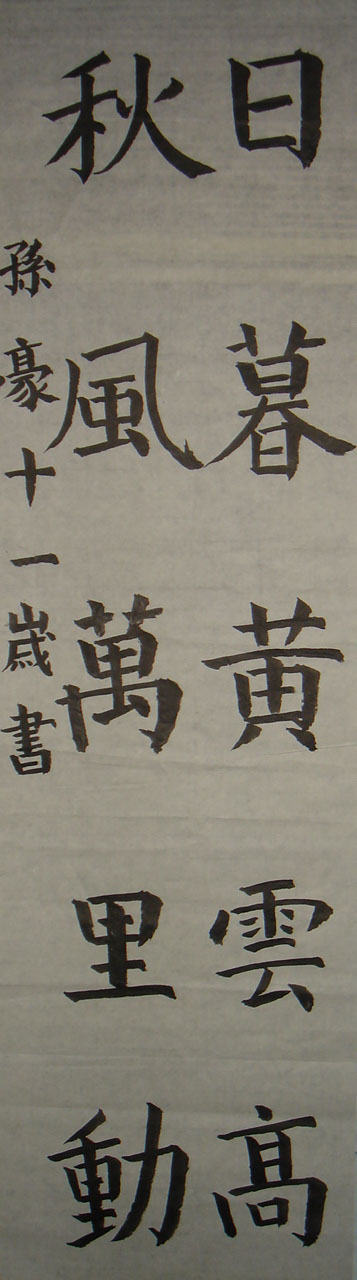 日暮黄雲高
秋風萬里動
孫豪十一歲書